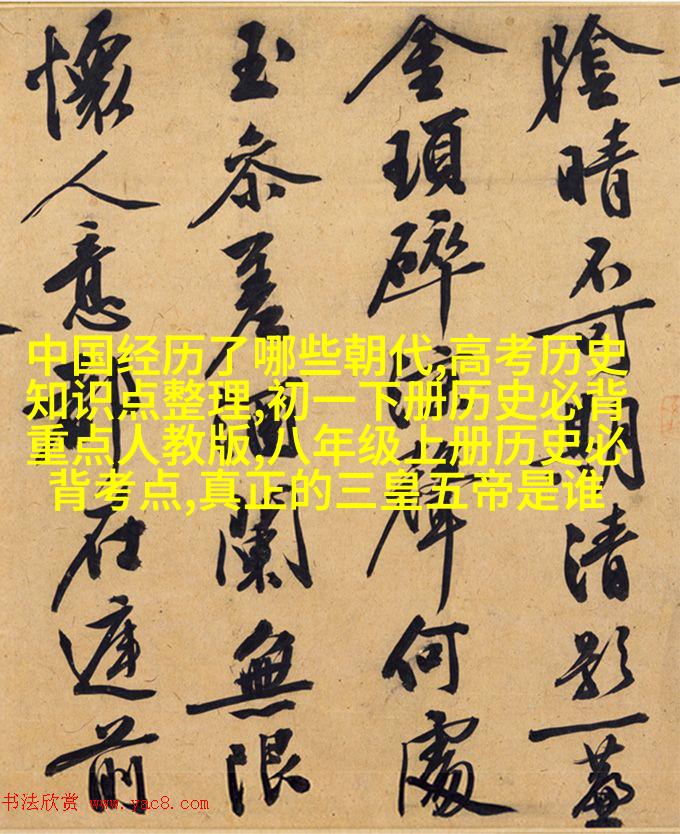 陰晴不可期清影一
金瑣碎聲何處
玉參差闌無限
懷人意在前
中国经历了哪些朝代,高考历史
知识点整理,初一下册历史必背
重点人教版,八年级上册历史必
背考点,真正的三皇五帝是谁
书法欣赏 www.yac8.com